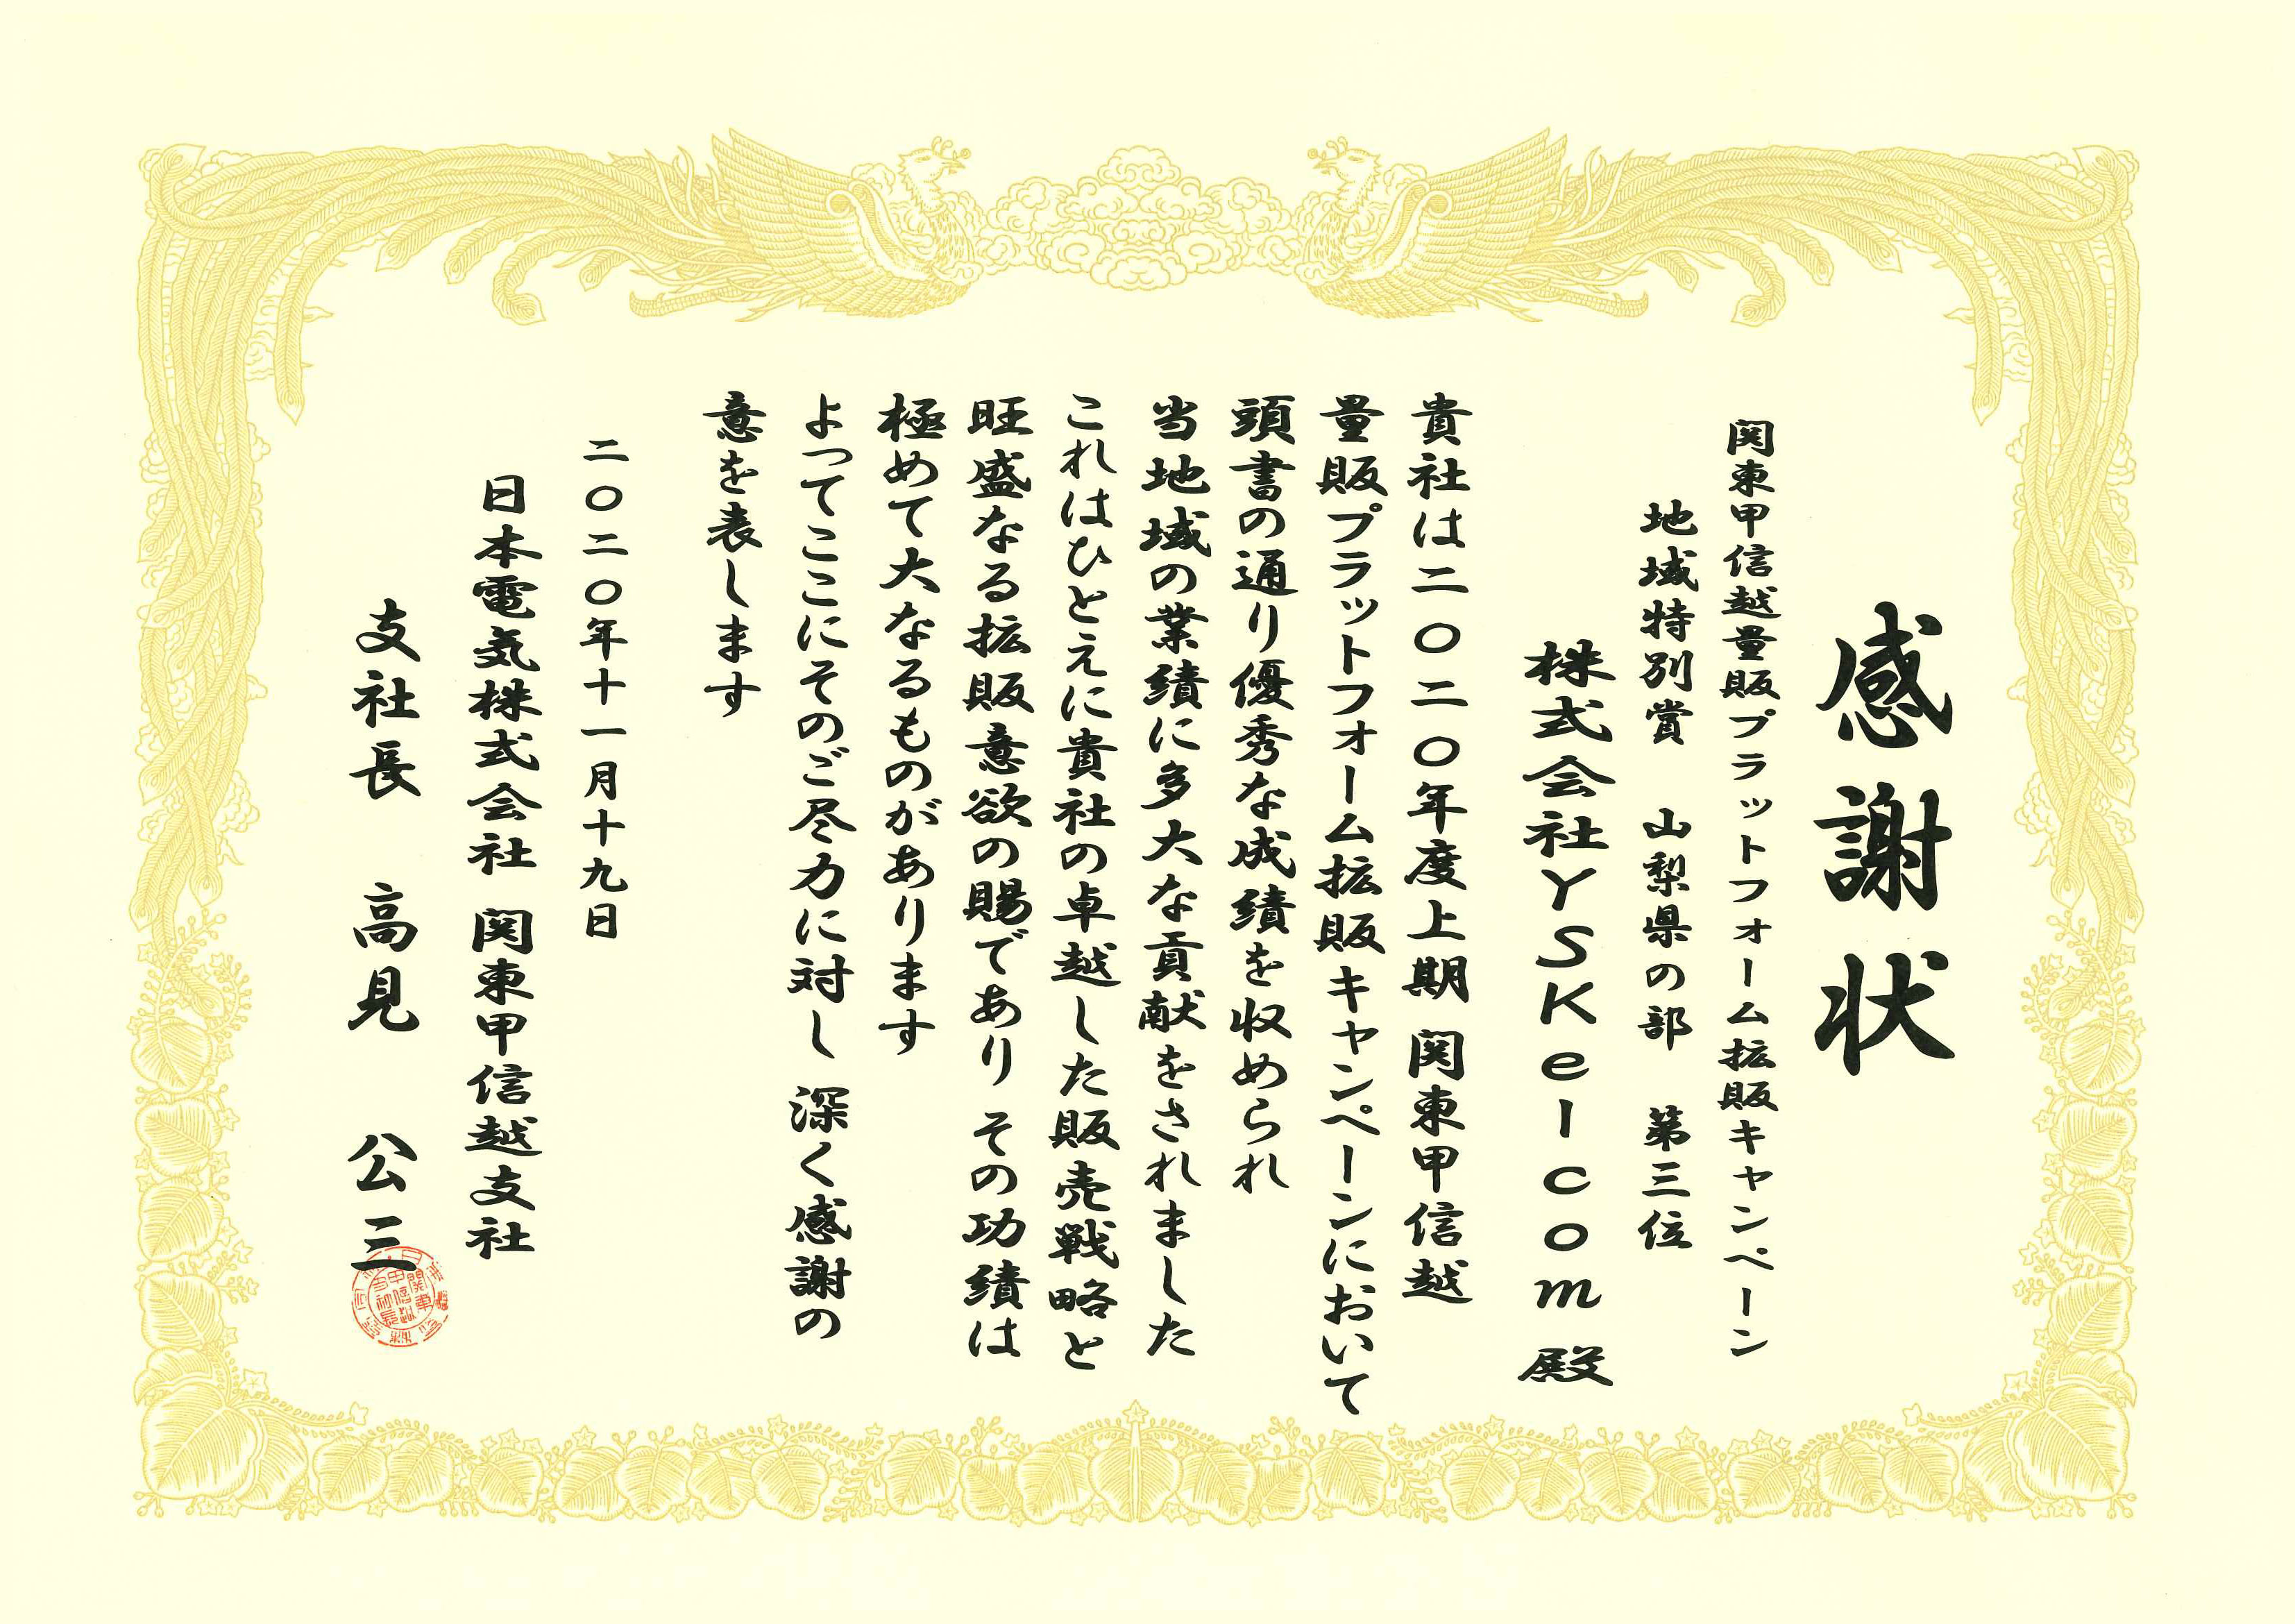 感謝状
関東甲信越量販プラットフォーム拡販キャンペーン
地域特別賞 山梨県の部 第三位
株式会社YSKelcom 殿
貴社は二〇二〇年度上期 関東甲信越
量販プラットフォーム拡販キャンペーンにおいて
頭書の通り優秀な成績を収められ
当地域の業績に多大な貢献をされました
これはひとえに貴社の卓越した販売戦略と
旺盛なる拡販意欲の賜であり その功績は
極めて大なるものがあります
よってここにそのご尽力に対し 深く感謝の
意を表します
二〇二〇年十一月十九日
日本電気株式会社 関東甲信越支社
支社長 高見 公三